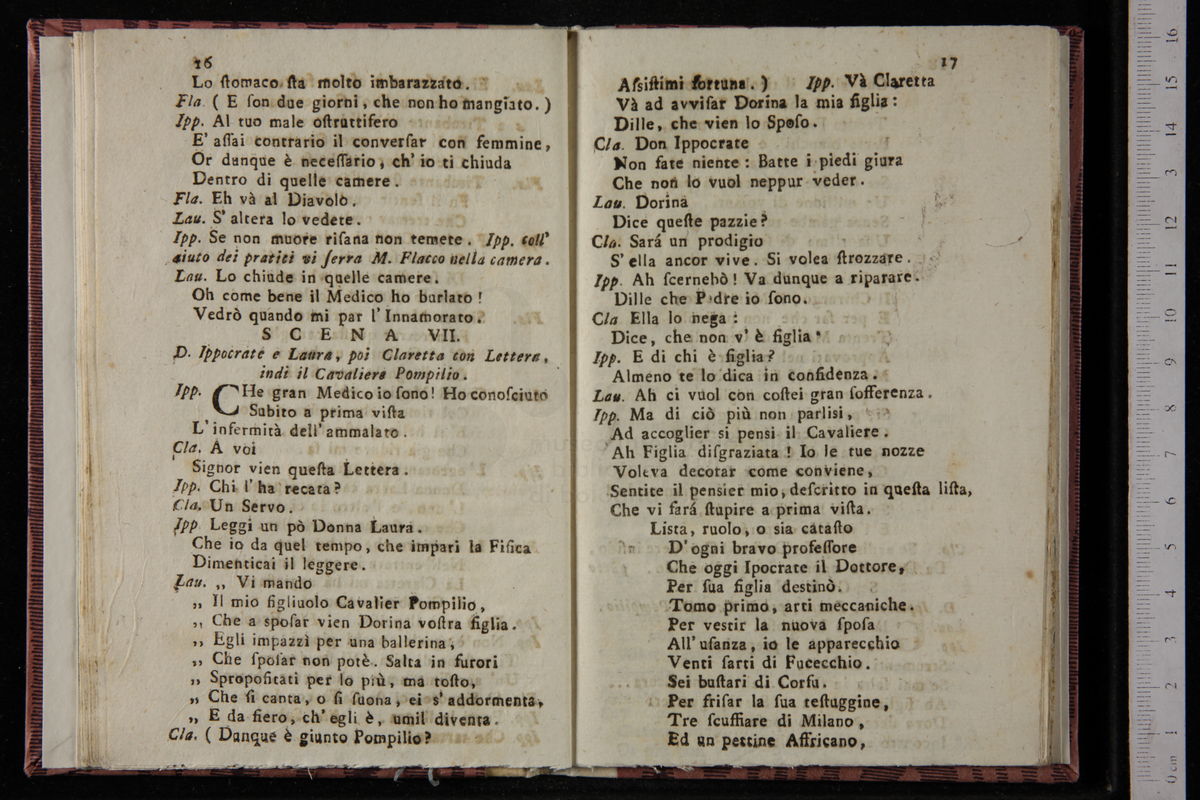 16
Lo ſtomaco ſta molto imbarazzato.
Fla. ( E ſon due giorni, che non ho mangiato. )
Ipp. Al tuo male oſtruttifero
E' aſſai contrario il converſar con femmine,
Or dunque è neceſſario, ch' io ti chiuda
Dentro di quelle camere.
Fla. Eh và al Diavolo.
Lau. S' altera lo vedete.
Ipp. Se non muore riſana non temete. Ipp. coll'
aiuto dei pratici vi ſerra M. Flacco nella camera.
Lau. Lo chiude in quelle camere.
Oh come bene il Medico ho burlato !
Vedrò quando mi par l' Innamorato.
S C E N A VII.
D. Ippocrate e Laura, poi Claretta con Lettera,
indi il Cavaliere Pompilio.
Ipp. CHe gran Medico io ſono! Ho conoſciuto
Subito a prima viſta
L' infermità dell' ammalato.
Cla. A voi
Signor vien queſta Lettera.
Ipp. Chi l' ha recata?
Cla. Un Servo.
Ipp Leggi un pò Donna Laura.
Che io da quel tempo, che impari la Fiſica
Dimenticai il leggere.
Lau. ,, Vi mando
,, Il mio figliuolo Cavalier Pompilio,
,, Che a spoſar vien Dorina voſtra figlia.
,, Egli impazzì per una ballerina,
,, Che ſpoſar non potè. Salta in furori
,, Spropoſitati per lo più, ma toſto,
,, Che ſi canta, o ſi ſuona, ei s' addormenta,
,, E da fiero, ch' egli è, umil diventa.
Cla. ( Dunque è giunto Pompilio?
17
Aſsiſtimi fortuna. ) Ipp. Và Claretta
Và ad avviſar Dorina la mia figlia :
Dille, che vien lo Spoſo.
Cla. Don Ippocrate
Non fate niente : Batte i piedi giura
Che non lo vuol neppur veder.
Lau. Dorina
Dice queſte pazzie?
Cla. Sará un prodigio
S' ella ancor vive. Si volea ſtrozzare.
Ipp. Ah ſcernebò ! Va dunque a riparare.
Dille che Padre io ſono.
Cla Ella lo nega :
Dice, che non v' è figlia
Ipp. E di chi è figlia?
Almeno te lo dica in confidenza.
Lau. Ah ci vuol con coſtei gran ſofferenza.
Ipp. Ma di ciò più non parliſi,
Ad accoglier si pensi il Cavaliere.
Ah Figlia diſgraziata ! Io le tue nozze
Voleva decorar come conviene,
Sentite il penſier mio, deſcritto in queſta liſta,
Che vi fará ſtupire a prima viſta.
Lista, ruolo, o sia cataſto
D' ogni bravo profeſſore
Che oggi Ipocrate il Dottore,
Per ſua figlia destinò.
Tomo primo, arti meccaniche.
Per vestir la nuova ſpoſa
All' uſanza, io le apparecchio
Venti ſarti di Fucecchio.
Sei buſtari di Corfu.
Per friſar la ſua teſtuggine,
Tre ſcuffiare di Milano,
Ed un pettine Affricano,